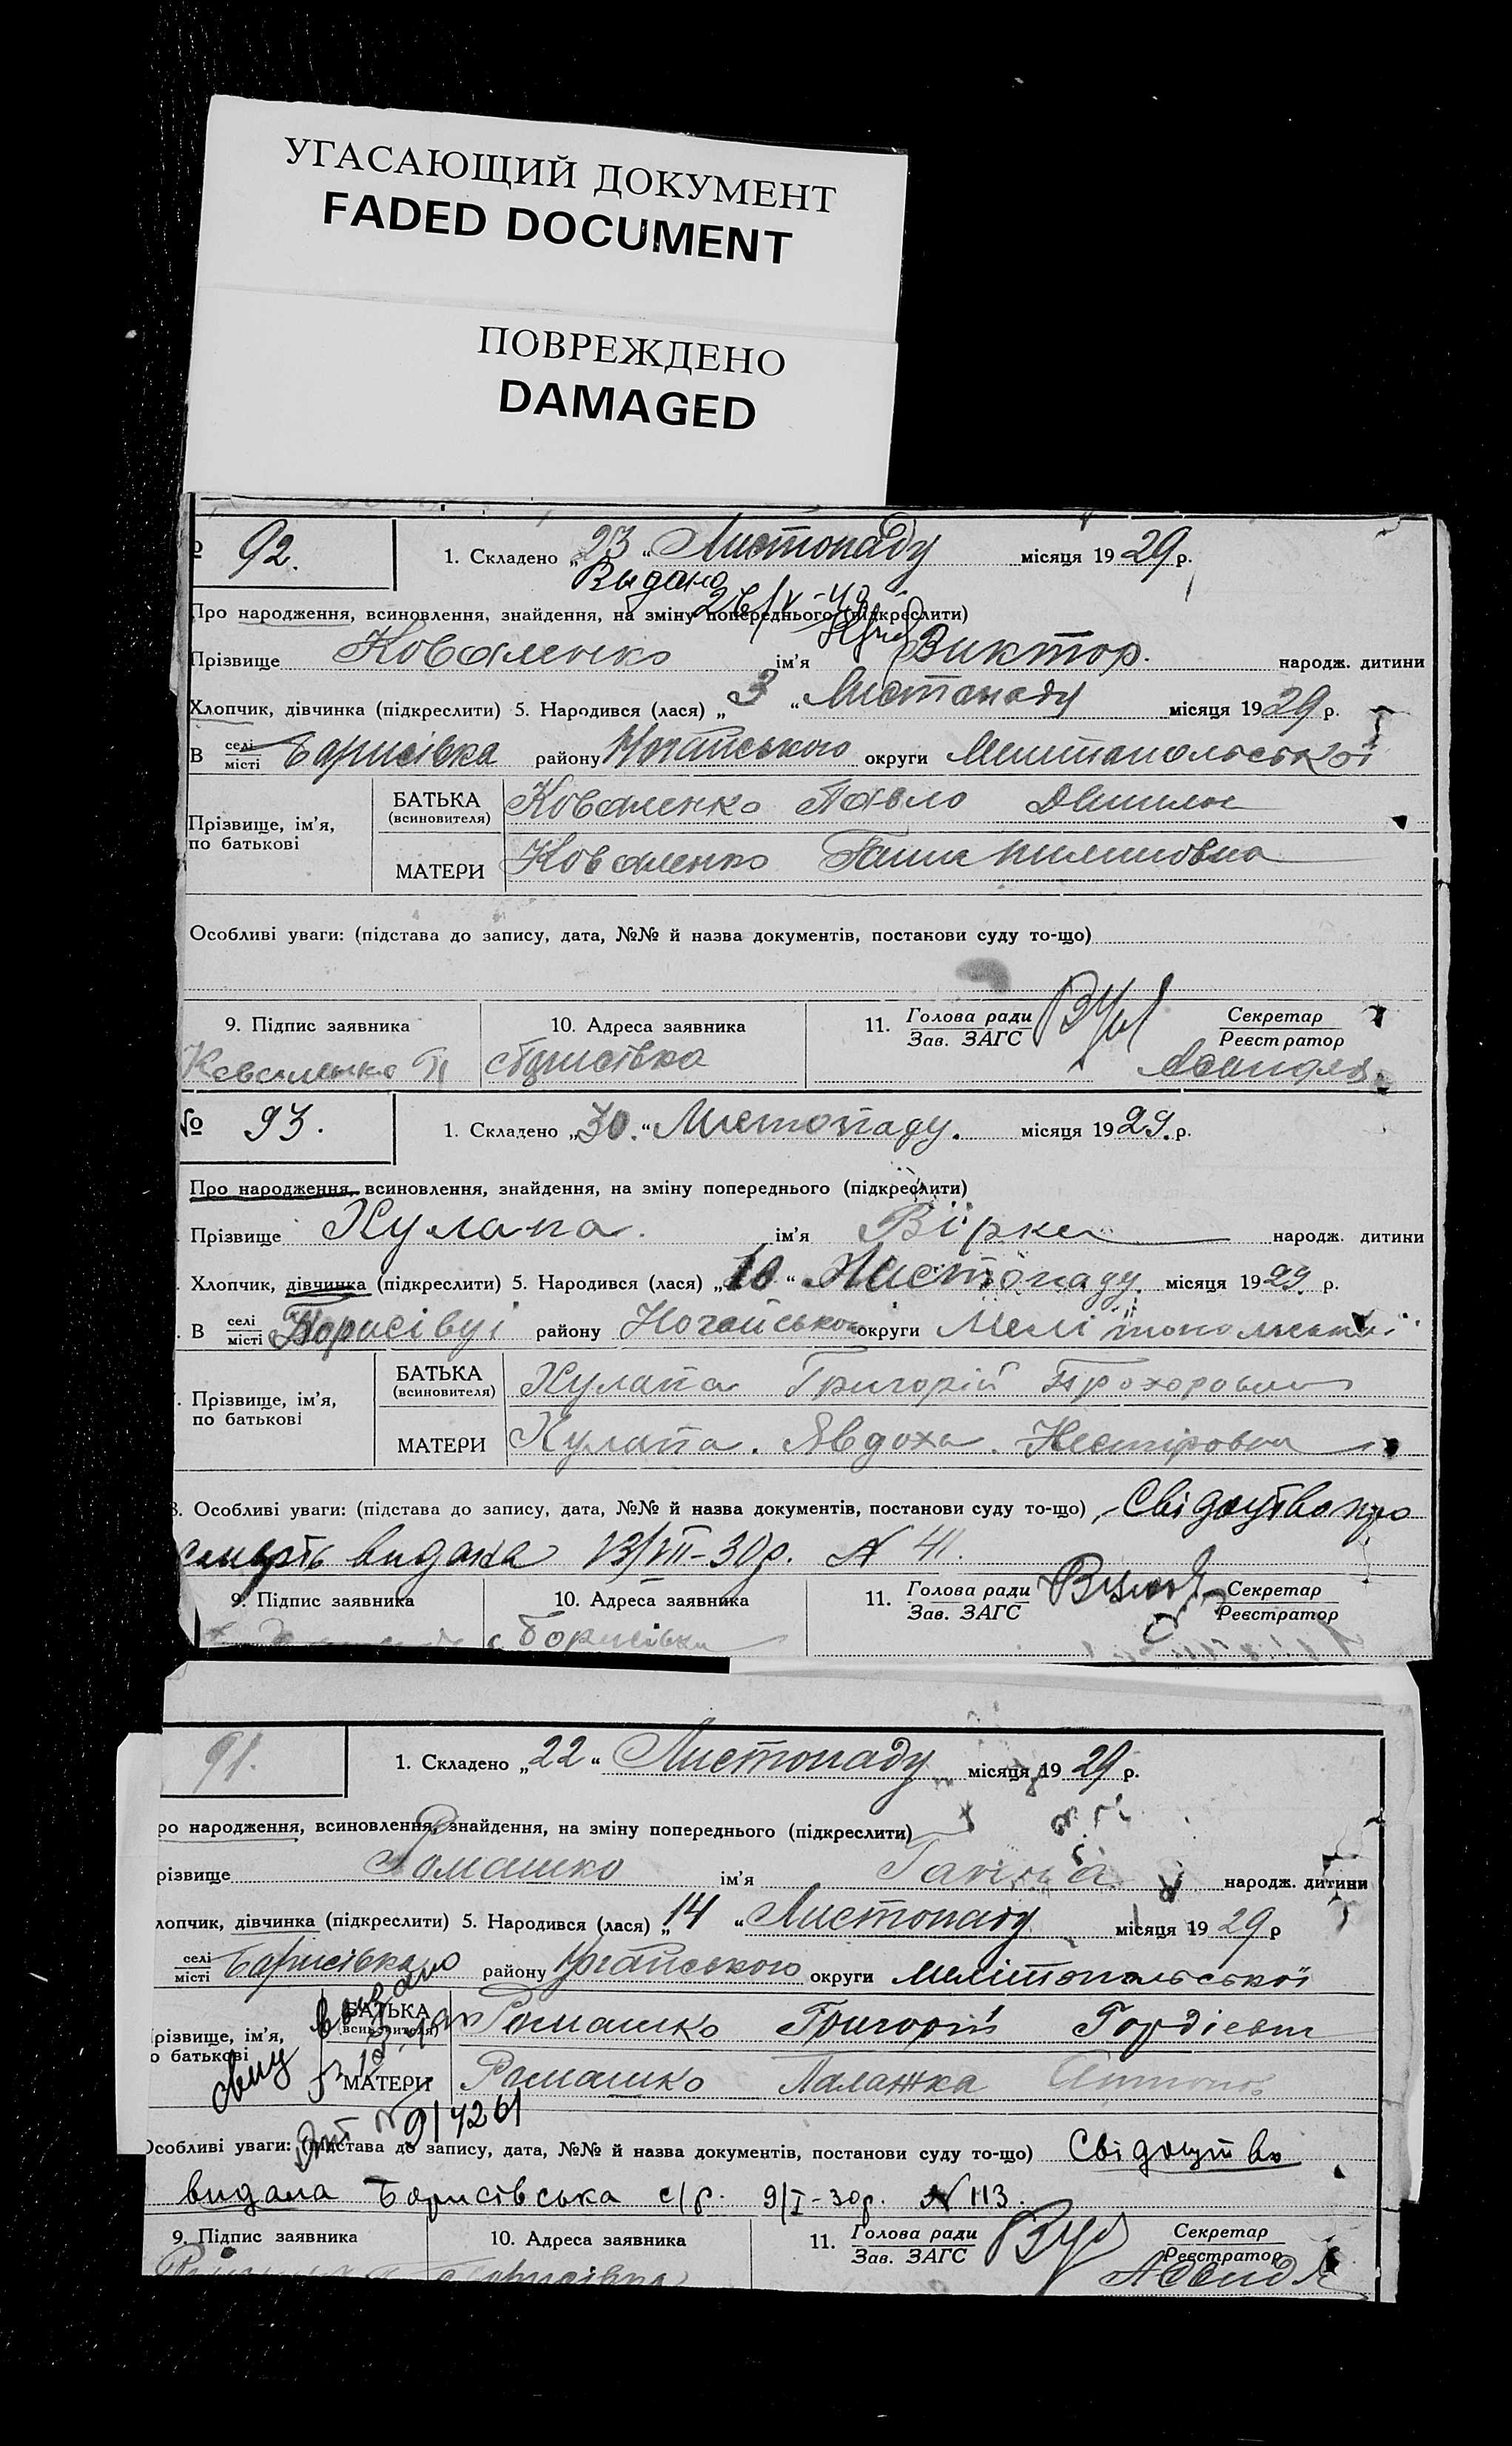 УГАСАЮЩИЙ ДОКУМЕНТ
FADED DOCUMENT
ПОВРЕЖДЕНО
DAMAGED
92.
1. Складено „23“ Листопаду місяця 1929 р.
Выдано
26/V-40
Про народження, всиновлення, знайдення, на зміну попереднього (підкреслити)
Прізвище Коваленко ім’я Виктор. народж. дитини
Хлопчик, дівчинка (підкреслити) 5. Народився (лася) „3“ Листопаду місяця 1929 р.
В селі місті Борисівка району Ногайського округи Мелитопольської
Прізвище, ім’я, по батькові
БАТЬКА (всиновителя) Коваленко Павло
МАТЕРИ Коваленко Ганна
Особливі уваги: (підстава до запису, дата, №№ й назва документів, постанови суду то-що)
9. Підпис заявника 10. Адреса заявника 11. Голова ради Зав. ЗАГС Секретар Реєстратор
Коваленко П Борисівка
№ 93.
1. Складено „30.“ Листопаду. місяця 1929. р.
Про народження, всиновлення, знайдення, на зміну попереднього (підкреслити)
Прізвище Кулапа. ім’я Вірка народж. дитини
Хлопчик, дівчинка (підкреслити) 5. Народився (лася) „10“ Листопаду. місяця 1929. р.
В селі місті Борисівці району Ногайського округи Мелітопольської
Прізвище, ім’я, по батькові
БАТЬКА (всиновителя) Кулапа Григорій Прохорович
МАТЕРИ Кулапа. Явдоха. Нестіровна
8. Особливі уваги: (підстава до запису, дата, №№ й назва документів, постанови суду то-що) Свідоцтво про
смерть видана 13/VII-30р. N 41.
9. Підпис заявника 10. Адреса заявника 11. Голова ради Зав. ЗАГС Секретар Реєстратор
с Борисівка
91.
1. Складено „22“ Листопаду місяця 1929 р.
ро народження, всиновлення, знайдення, на зміну попереднього (підкреслити)
різвище Ромашко ім’я Ганна народж. дитини
лопчик, дівчинка (підкреслити) 5. Народився (лася) „14“ Листопаду місяця 1929 р
селі місті Борисівка району Ногайського округи Мелітопольської
різвище, ім’я, о батькові
БАТЬКА (всиновителя) Ромашко Григорій Гордієвич
МАТЕРИ Ромашко Палажка Антонов
видано
914261
Особливі уваги: (підстава до запису, дата, №№ й назва документів, постанови суду то-що) Свідоцтво
видана Борисівська с/р. 9/I-30р. N 113.
9. Підпис заявника 10. Адреса заявника 11. Голова ради Зав. ЗАГС Секретар Реєстратор
Борисівка